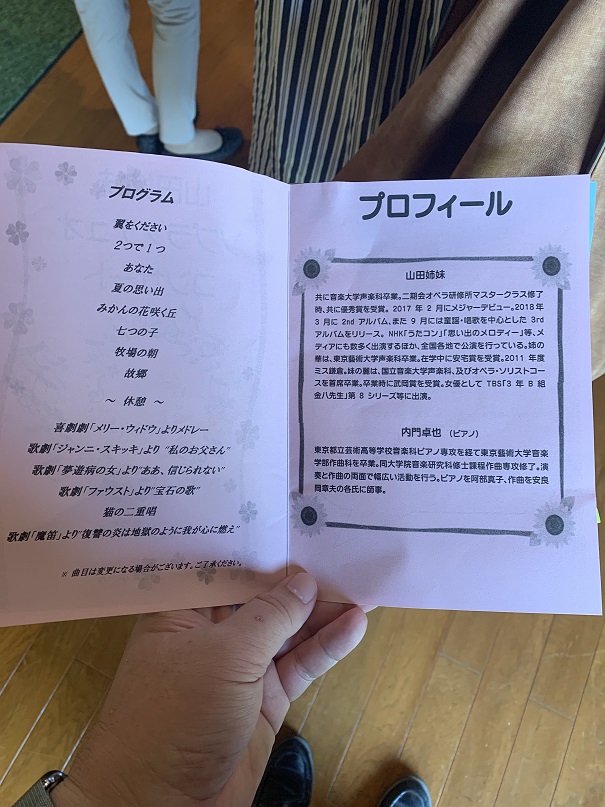 プログラム
翼をください
2つで1つ
あなた
夏の思い出
みかんの花咲く丘
七つの子
牧場の朝
故郷
～ 休憩 ～
喜劇劇「メリー・ウィドウ」よりメドレー
歌劇「ジャンニ・スキッキ」より "私のお父さん"
歌劇「夢遊病の女」より"ああ、信じられない"
歌劇「ファウスト」より"宝石の歌"
猫の二重唱
歌劇「魔笛」より"復讐の炎は地獄のように我が心に燃え"
※ 曲目は変更になる場合がございます。ご了承ください。
プロフィール
山田姉妹
共に音楽大学声楽科卒業。二期会オペラ研修所マスタークラス修了
時、共に優秀賞を受賞。2017 年 2 月にメジャーデビュー。2018年
3 月に 2nd アルバム、また 9 月には童謡・唱歌を中心とした 3rd
アルバムをリリース。 NHK「うたコン」「思い出のメロディー」等、メ
ディアにも数多く出演するほか、全国各地で公演を行っている。姉の
華は、東京藝術大学声楽科卒業。在学中に安宅賞を受賞。2011 年度
ミス鎌倉。妹の麗は、国立音楽大学声楽科、及びオペラ・ソリストコー
スを首席卒業。卒業時に武岡賞を受賞。女優として TBS「3 年 B 組
金八先生」第 8 シリーズ等に出演。
内門卓也 （ピアノ）
東京都立芸術高等学校音楽科ピアノ専攻を経て東京藝術大学音楽
学部作曲科を卒業。同大学院音楽研究科修士課程作曲専攻修了。演
奏と作曲の両面で幅広い活動を行う。ピアノを阿部真子、作曲を安良
岡章夫の各氏に師事。